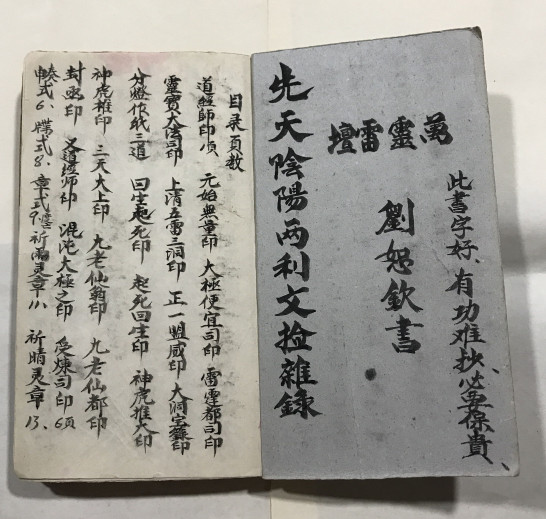 此書字好、有功难抄、必要保貴、
萬靈雷壇
劉恕欽書
先天陰陽两利文捡雜錄
目录頁数
道經師印 元始無量印 大極便宜司印 雷霆都司印
靈寶大法司印 上清五雷三洞印 正一盟威印 大洞宝籙印
分燈作 二道 回生起死印 起死回生印 神虎推大印
神虎推印 三天大上印 九老仙翁印 九老仙都印
封函印 又道經师印 混沌大極之印 受煉司印 6頁
奏申式6、牒式8、章式9、祈雨灵章11、祈晴灵章13、